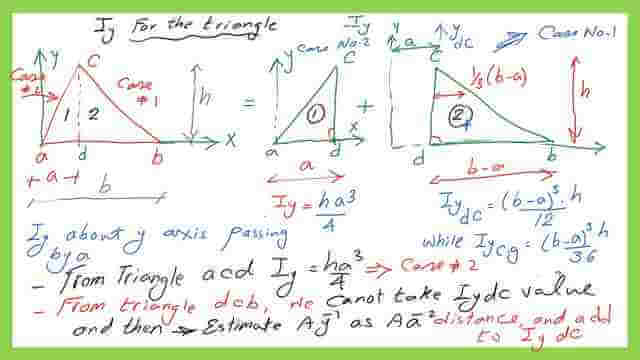 Iy For the triangle
Iy
Case No-2
y
a
y
dc
Case No-1
y
C
Case
#2
Case
#1
1
2
h
a
d
b
x
a
b
=
y
C
1
x
a
d
a
Iy = ha³/4
+
C
1/3(b-a)
2
h
d
b
b-a
Iy dc = (b-a)³·h/12
while Iy c.g = (b-a)³h/36
Iy about y axis passing
by a
- From Triangle acd Iy = ha³/4 ⇒ Case # 2
- From triangle dcb, we canot take Iydc value
and then → Estimate Aȳ² as Aā² distance, and add
to Iy dc